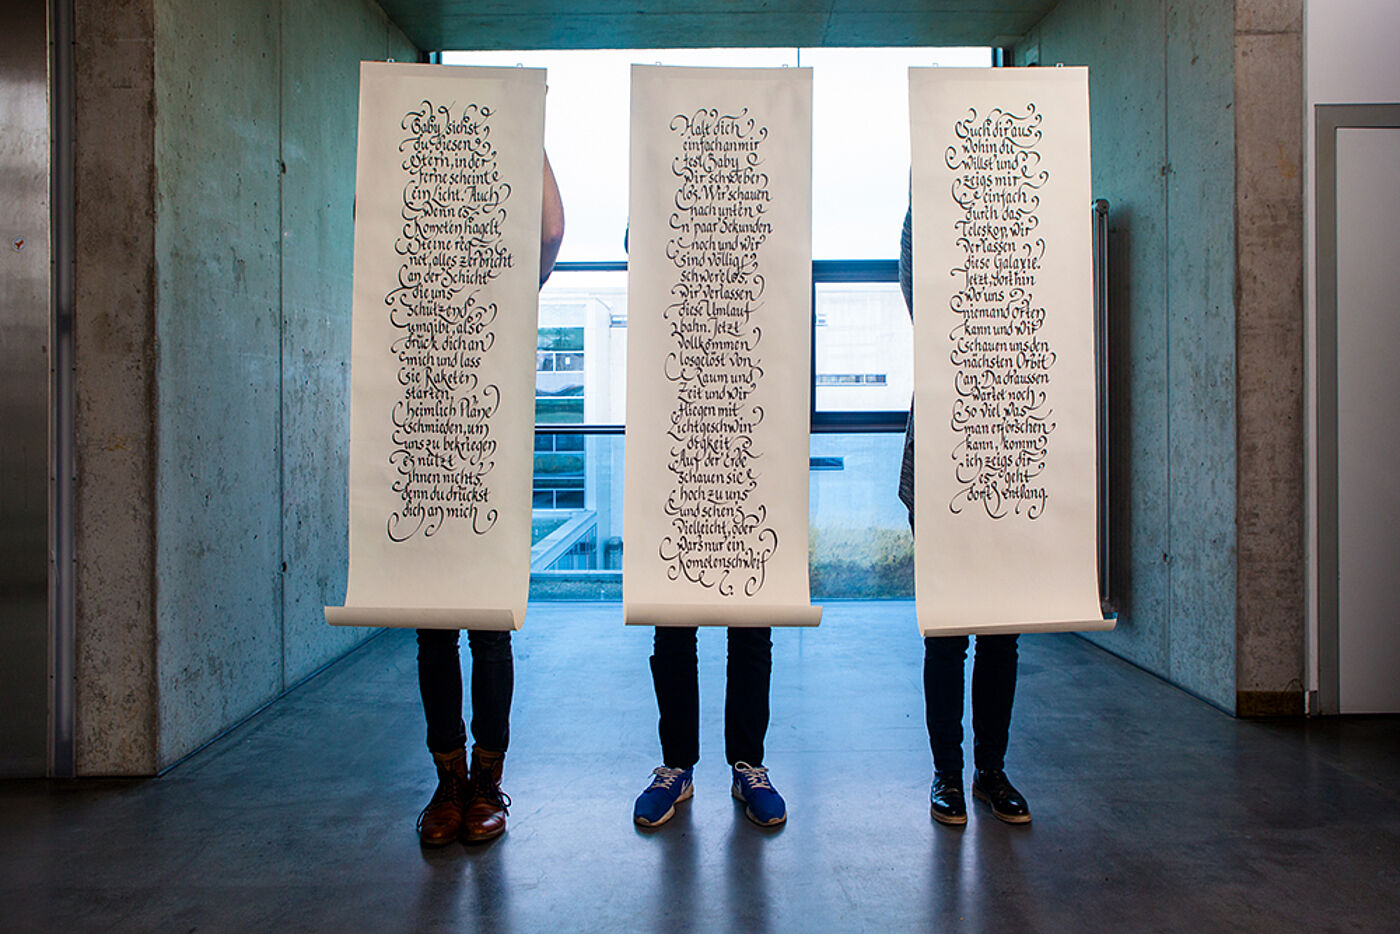 Baby siehst
du diesen
Stern, in der
Ferne scheint
ein Licht. Auch
wenn es
Kometen hagelt,
Steine reg-
net, alles zerbricht
an der Schicht
die uns
Schützend
umgibt, also
drück dich an
mich und lass
sie Raketen
starten,
heimlich Pläne
schmieden, um
uns zu bekriegen
Es nützt
ihnen nichts,
denn du drückst
dich an mich
Halt dich
einfach an mir
fest Baby
Wir schweben
los. Wir schauen
nach unten
n paar Sekunden
noch und wir
sind völlig
schwerelos.
Wir verlassen
diese Umlauf
bahn. Jetzt
vollkommen
losgelöst von
Raum und
Zeit und wir
fliegen mit
Lichtgeschwin
digkeit
Auf der Erde
schauen sie
hoch zu uns
und sehen's
vielleicht, oder
wars nur ein
Kometenschweif
?
Such dir aus,
wohin du
willst und
zeigs mir
einfach
durch das
Teleskop, wir
verlassen
diese Galaxie.
Jetzt, dorthin
wo uns
niemand orten
kann und wir
schauen uns den
nächsten Orbit
an. Da draussen
wartet noch
so viel was
man erforschen
kann, komm
ich zeigs dir
es geht
dort entlang.